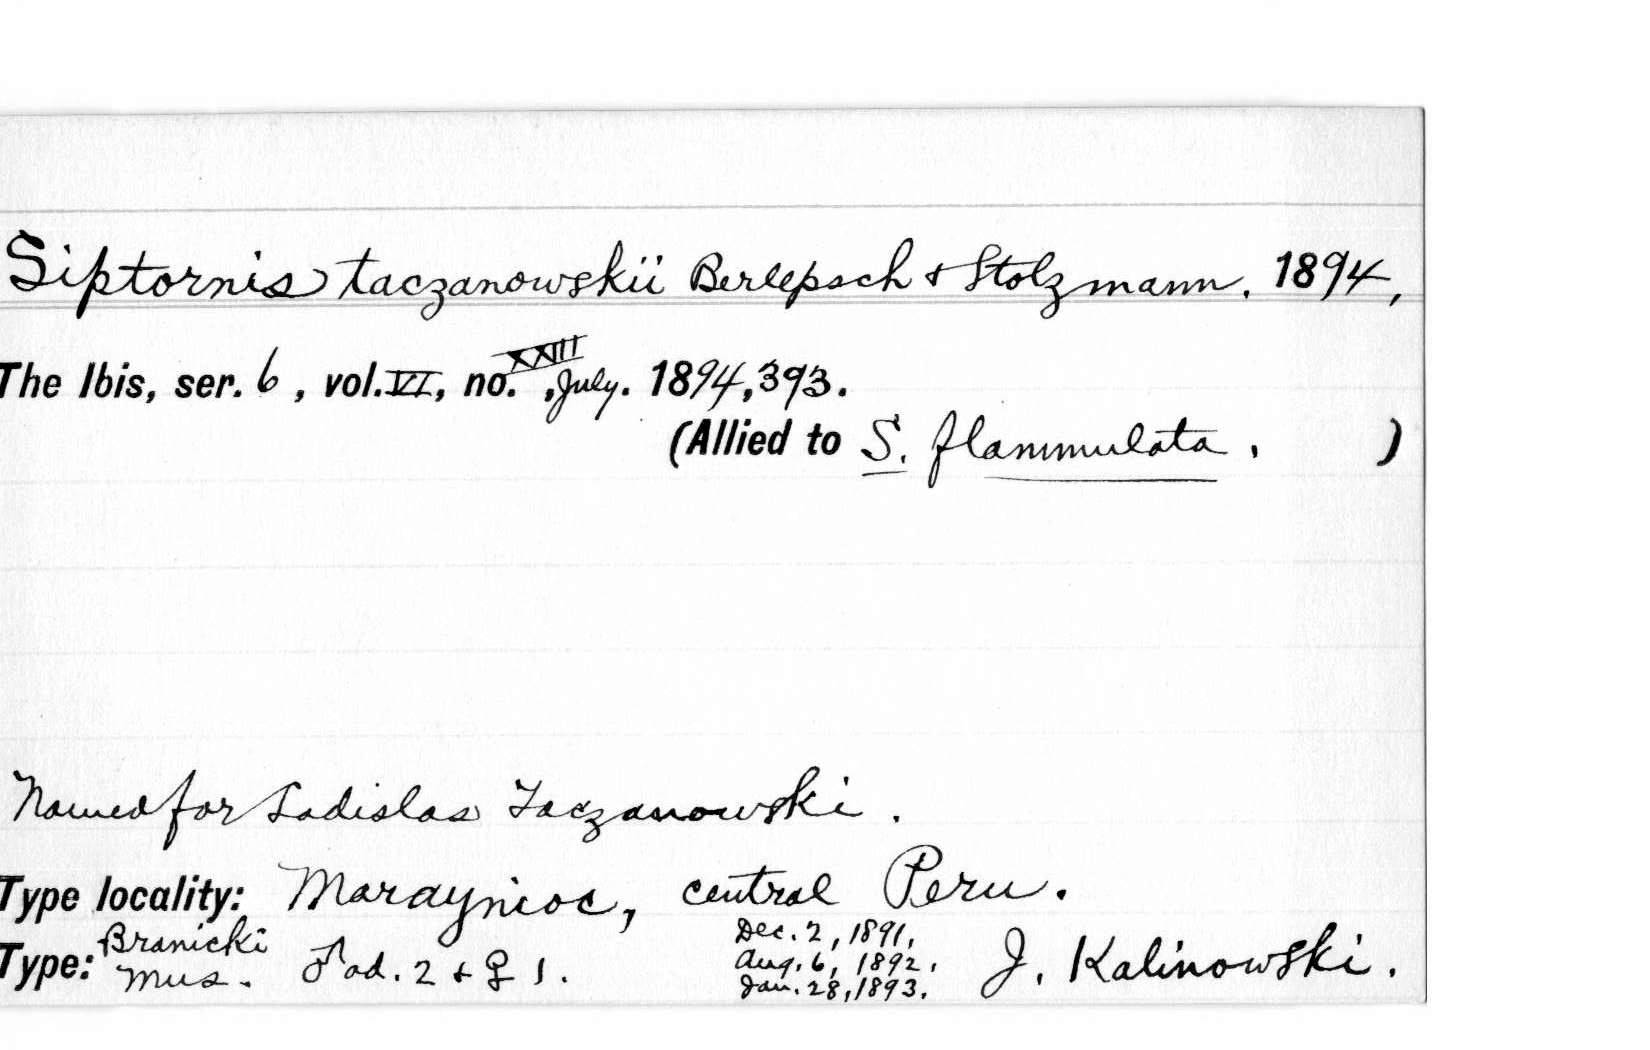 Siptornis taczanowskii Berlepsch & Stolzmann. 1894,
The Ibis, ser. 6, vol. VI, no. XXIII, July. 1894, 393.
(Allied to S. flammulata. )
Named for Ladislas Taczanowski.
Type locality: Maraynioc, central Peru.
Type: Branicki Mus. ♂ ad. 2 & ♀ 1. Dec. 2, 1891, Aug. 6, 1892, Jan. 28, 1893. J. Kalinowski.